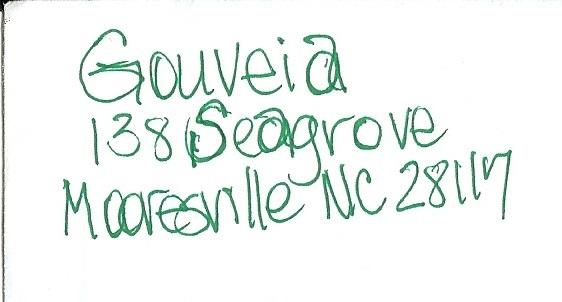 Gouveia
138 Seagrove
Mooresville NC 28117